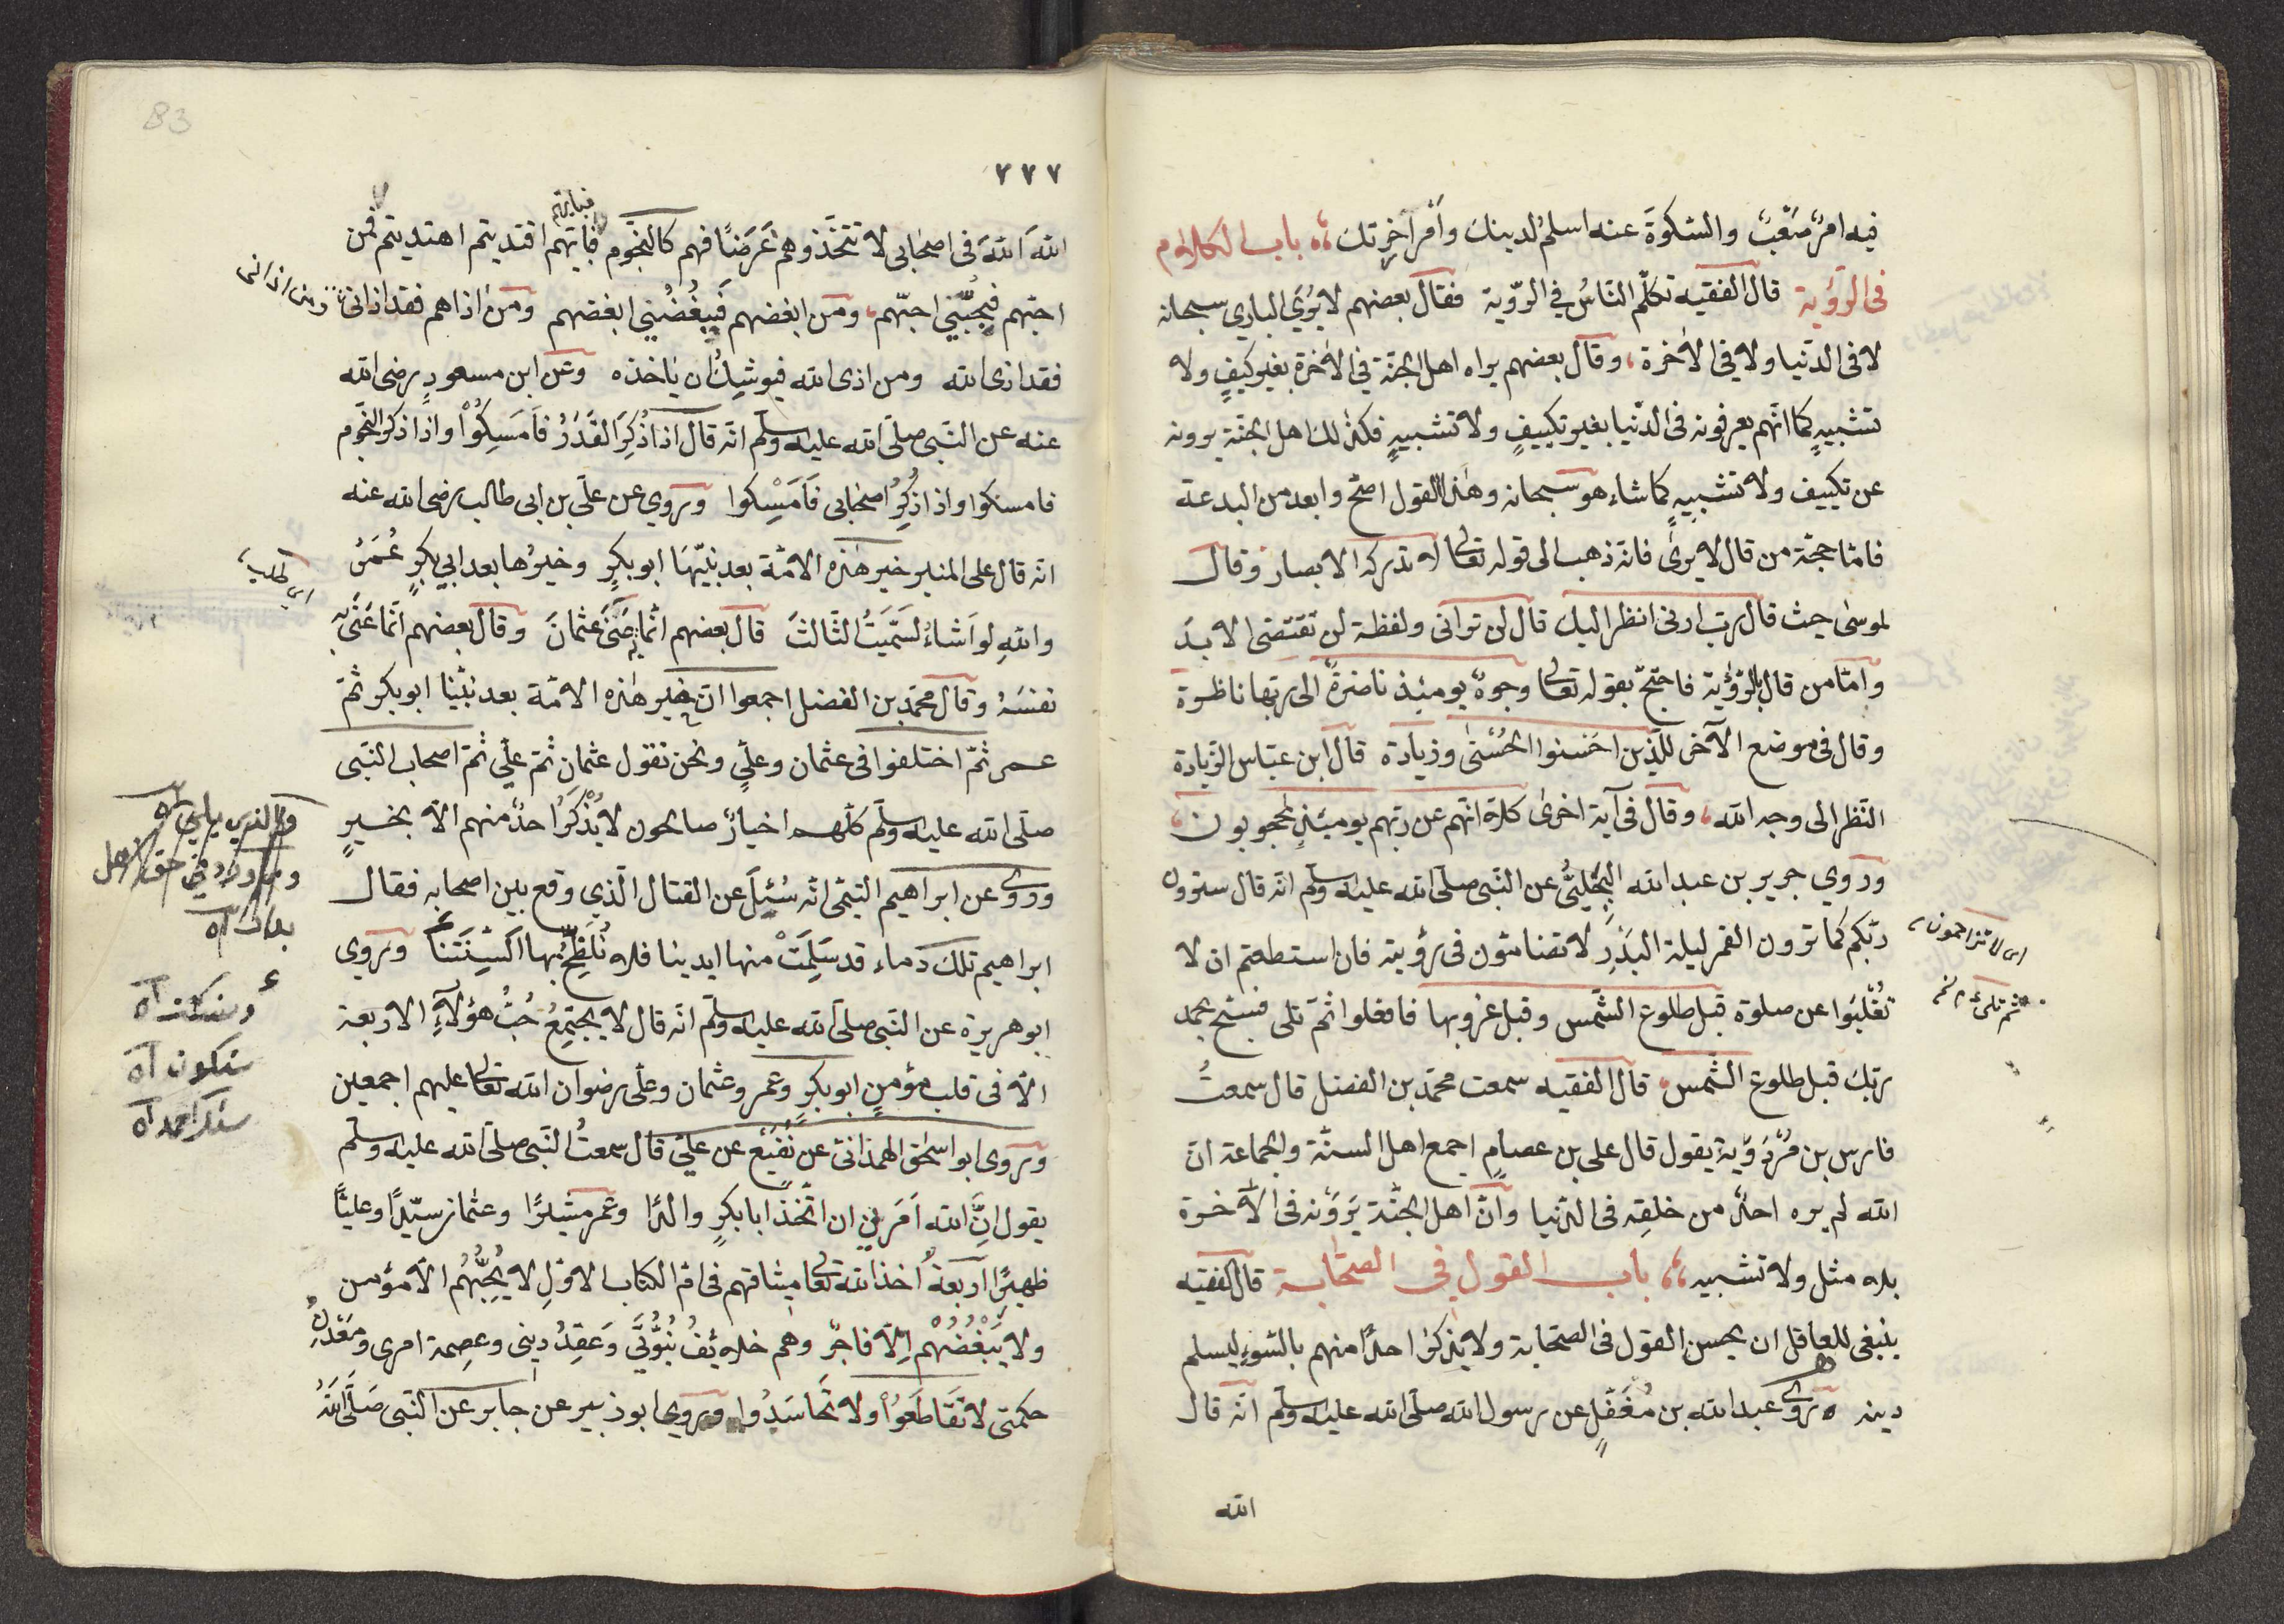 فيه امرٌ صَعْبٌ والسّكوةَ عنه اسلمُ لدينك وَأمْرِ آخرتك باب الكلام
فى الرّؤية قال الفقيه تكلّم النّاسُ في الرّؤية فقال بعضهم لا يُرَي الباري سبحانه
لا فى الدّنيا ولا في الآخرة، وقال بعضهم يراه اهل الجنّة في الآخرة بغير كيفٍ ولا
تشبيهٍ كما انّهم يعرفونه فى الدّنيا بغير تكييفٍ ولا تشبيهٍ فكذلك اهل الجنّة يرونه
عن تكييف ولا تشبيهٍ كما شاء هو سبحانه وهذا القول اصحّ وابعد من البدعة
فامّا حجّة من قال لا يرىٰ فانّه ذهب الى قوله تعالى لا تدركه الابصار وقال
لموسٰى حيث قال ربّ ارنى انظر اليك قال لن ترانى ولفظة لن تقتضى الابدَ
وامّا من قال بالرّؤية فاحتجّ بقوله تعالى وجوهٌ يومئذ ناضرةٌ الى ربها ناظرة
وقال فى موضع الآخر للّذين احسنوا الحُسْنٰى وزيادة قال ابن عبّاس الزّيادة
النّظر الى وجه الله، وقال فى آية اخرىٰ كلّا انّهم عن ربّهم يومئذٍ لمحجوبون،
وروي جرير بن عبد الله البَجَلِيُّ عن النّبى صلّى الله عليه وسلّم انّه قال سترون
ربّكم كما ترون القمر ليلة البَدْرِ لا تضامّون فى رؤيته فان استطعتم ان لا
تُغْلَبَوا عن صلوة قبل طلوع الشّمس وقبل غروبها فافعلوا ثمّ تلى فسبّح بحمد
ربّك قبل طلوع الشّمس قال الفقيه سمعت محمّد بن الفضل قال سمعتُ
فارس بن مَرْدَوَيْهِ يقول قال على بن عصامٍ اجمع اهل السنّة والجماعة انّ
الله لم يره احدٌ من خلقِه فى الدّنيا وانّ اهل الجنّة يَرَوْنه فى الآخرة
بلا مثل ولا تشبيه باب القول في الصّحابة قال الفقيه
ينبغى للعاقل ان يحسن القول فى الصّحابة ولا يذكر احدًا منهم بالسّوء ليسلم
دينه روى عبد الله بن مُغَفَّلٍ عن رسول الله صلّى الله عليه وسلّم انّه قال
الله
اى لا تزاحمون
ثم تلى
B3
٢٢٧
فبايّهم
اللهَ اللهَ فى اصحابى لا تتّخذوهم غَرَضًا فهم كالنّجوم فايّهم اقتديتم اهتديتم فمن
احبّهم فبحُبّي احبّهم، ومَن ابغضهم فببُغْضي ابغضهم ومَن اذاهم فقد اذانى
ومن اذانى
فقد اذى الله ومن اذى الله فيوشِكُ ان ياخذه وعن ابن مسعودٍ رضى الله
عنه عن النّبى صلّى الله عليه وسلّم انّه قال اذا ذُكِرَ القَدَرُ فَاَمسِكُوْا واذا ذكر النّجوم
فامسكوا واذا ذُكِرَ اصحابى فَاَمْسِكوا وروي عن علّى بن ابى طالب رضى الله عنه
انّه قال على المنبر خير هٰذه الامّة بعد نبيّها ابو بكرٍ وخيرُها بعد ابي بكرٍ عُمَرُ
واللهِ لو اَشاءُ لسَمّيتُ الثّالثَ قال بعضهم انّما عَنَى عثمانَ وقال بعضهم انّما عَنَى به
نفسَهُ وقال محمّد بن الفضل اجمعوا انّ خير هٰذه الامّة بعد نبيّنا ابو بكر ثمّ
عمر ثمّ اختلفوا فى عثمان وعليٍّ ونحن نقول عثمان ثمّ علّي ثمّ اصحاب النّبى
صلّى الله عليه وسلّم كلّهم اخيارٌ صالحون لا يُذْكَرُ احدٌ منهم الّا بخيرٍ
وروى عن ابراهيم التيّمى انّه سُئِلَ عن القتال الّذي وقع بين اصحابه فقال
ابراهيم تلك دماء قد سَلِمَتْ منها ايدينا فلا نُلَطِّخُ بها اَلسِنَتَنا وروي
ابو هريرة عن النّبى صلّى الله عليه وسلّم انّه قال لا يجتمِعُ حُبُّ هؤلآءِ الاربعة
الّا فى قلب مؤمنٍ ابو بكرٍ وعمر وعثمان وعلّى رضوان الله تعالى عليهم اجمعين
وروى ابو اسحٰق الهمذانىّ عن نُفَيْعٍ عن علىّ قال سمعتُ النّبى صلّى الله عليه وسلّم
يقول اِنَّ الله اَمَرَني ان اتّخذ ابا بكرٍ والدًا وعمر مشيرًا وعثمان سيّدًا وعليًّا
ظهيرًا اربعةٌ اخذ الله تعالى ميثاقهم فى امّ الكتاب الاوّلِ لا يُحِبُّهُم الّا مؤمن
ولا يُبْغُضُهُمْ اِلّا فاجرٌ وهم خلائفُ نُبُوَّتي وَعَقِدُ دينى وعِصمة امرى ومَعْدِنُ
حكمتى لا تَقَاطَعُوْا ولا تَحاسَدُوا وروي ابو زبير عن جابر عن النّبى صَلَّى اللهُ